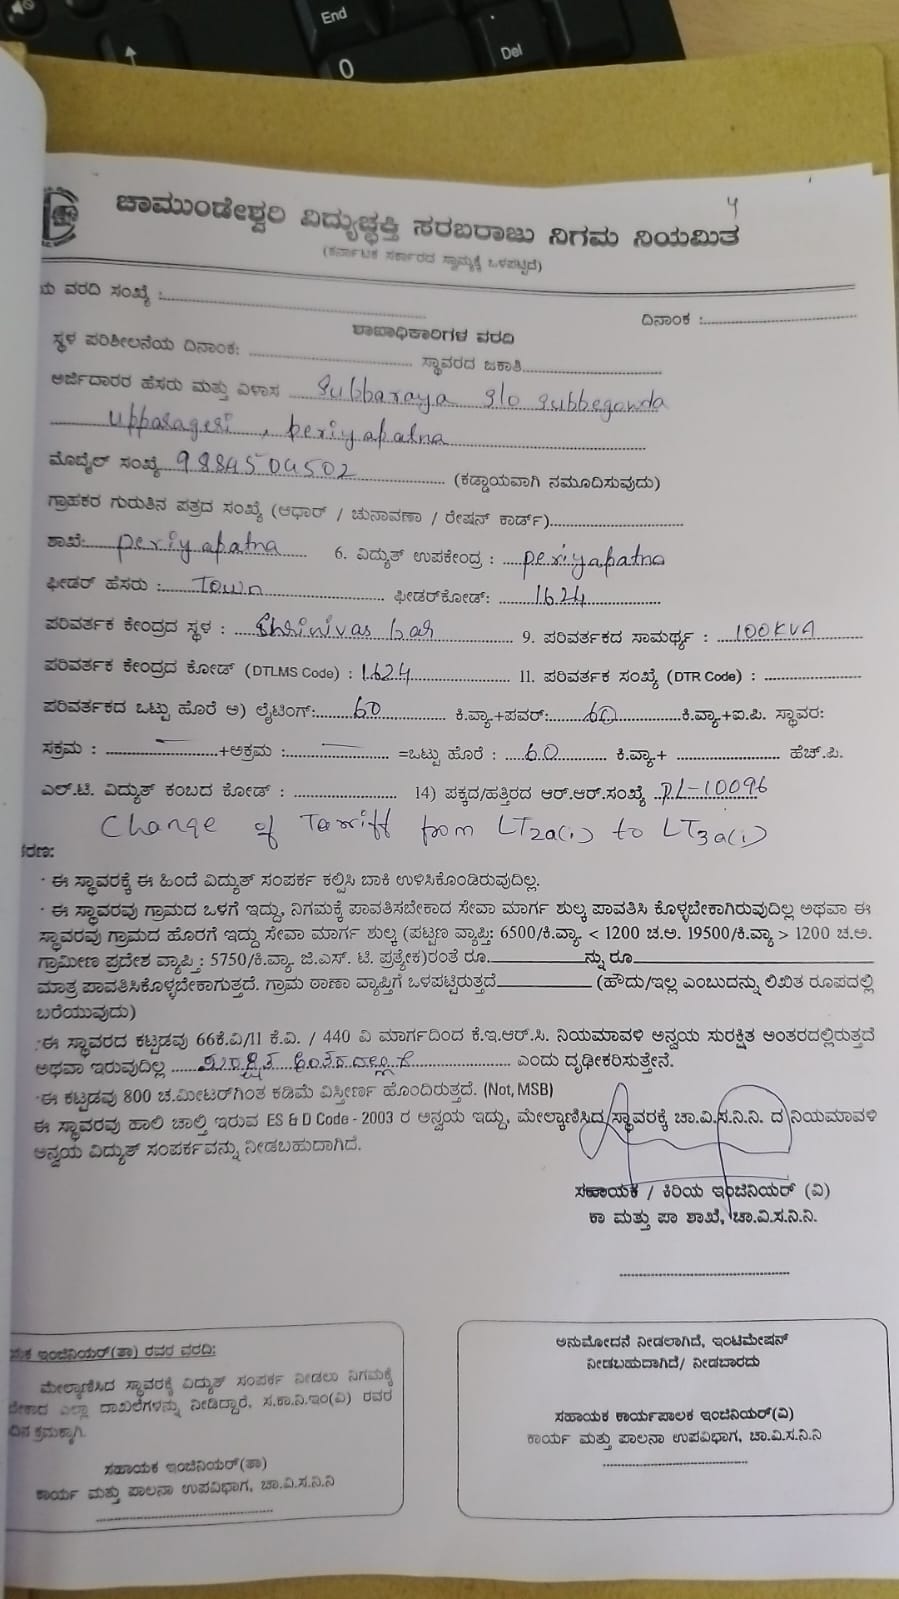 End
0
Del
4
ಚಾಮುಂಡೇಶ್ವರಿ ವಿದ್ಯುಚ್ಛಕ್ತಿ ಸರಬರಾಜು ನಿಗಮ ನಿಯಮಿತ
(ಕರ್ನಾಟಕ ಸರ್ಕಾರದ ಸ್ವಾಮ್ಯಕ್ಕೆ ಒಳಪಟ್ಟಿದೆ)
ಯ ವರದಿ ಸಂಖ್ಯೆ :
ದಿನಾಂಕ :
ಶಾಖಾಧಿಕಾರಿಗಳ ವರದಿ
ಸ್ಥಳ ಪರಿಶೀಲನೆಯ ದಿನಾಂಕ: ಸ್ಥಾವರದ ಜಕಾತಿ
ಅರ್ಜಿದಾರರ ಹೆಸರು ಮತ್ತು ವಿಳಾಸ Subbaraya S/o Subbegowda
Upparageri, periyapatna
ಮೊಬೈಲ್ ಸಂಖ್ಯೆ 9884504502 (ಕಡ್ಡಾಯವಾಗಿ ನಮೂದಿಸುವುದು)
ಗ್ರಾಹಕರ ಗುರುತಿನ ಪತ್ರದ ಸಂಖ್ಯೆ (ಆಧಾರ್ / ಚುನಾವಣಾ / ರೇಷನ್ ಕಾರ್ಡ್)
ಶಾಖೆ: periyapatna 6. ವಿದ್ಯುತ್ ಉಪಕೇಂದ್ರ : periyapatna
ಫೀಡರ್ ಹೆಸರು : Town ಫೀಡರ್‌ಕೋಡ್: 1624
ಪರಿವರ್ತಕ ಕೇಂದ್ರದ ಸ್ಥಳ : Shrinivas bar 9. ಪರಿವರ್ತಕದ ಸಾಮರ್ಥ್ಯ : 100KVA
ಪರಿವರ್ತಕ ಕೇಂದ್ರದ ಕೋಡ್ (DTLMS Code) : 1624 11. ಪರಿವರ್ತಕ ಸಂಖ್ಯೆ (DTR Code) :
ಪರಿವರ್ತಕದ ಒಟ್ಟು ಹೊರೆ ಅ) ಲೈಟಿಂಗ್: 60 ಕಿ.ವ್ಯಾ+ಪವರ್: 60 ಕಿ.ವ್ಯಾ+ಐ.ಪಿ. ಸ್ಥಾವರ:
ಸಕ್ರಮ : +ಅಕ್ರಮ : =ಒಟ್ಟು ಹೊರೆ : 60 ಕಿ.ವ್ಯಾ+ ಹೆಚ್.ಪಿ.
ಎಲ್.ಟಿ. ವಿದ್ಯುತ್ ಕಂಬದ ಕೋಡ್ : 14) ಪಕ್ಕದ/ಹತ್ತಿರದ ಆರ್.ಆರ್.ಸಂಖ್ಯೆ PL-10096
Change of Tarriff from LT2a(i) to LT3a(i)
ರಣ:
· ಈ ಸ್ಥಾವರಕ್ಕೆ ಈ ಹಿಂದೆ ವಿದ್ಯುತ್ ಸಂಪರ್ಕ ಕಲ್ಪಿಸಿ ಬಾಕಿ ಉಳಿಸಿಕೊಂಡಿರುವುದಿಲ್ಲ.
· ಈ ಸ್ಥಾವರವು ಗ್ರಾಮದ ಒಳಗೆ ಇದ್ದು, ನಿಗಮಕ್ಕೆ ಪಾವತಿಸಬೇಕಾದ ಸೇವಾ ಮಾರ್ಗ ಶುಲ್ಕ ಪಾವತಿಸಿ ಕೊಳ್ಳಬೇಕಾಗಿರುವುದಿಲ್ಲ ಅಥವಾ ಈ
ಸ್ಥಾವರವು ಗ್ರಾಮದ ಹೊರಗೆ ಇದ್ದು ಸೇವಾ ಮಾರ್ಗ ಶುಲ್ಕ (ಪಟ್ಟಣ ವ್ಯಾಪ್ತಿ: 6500/ಕಿ.ವ್ಯಾ. < 1200 ಚ.ಅ. 19500/ಕಿ.ವ್ಯಾ > 1200 ಚ.ಅ.
ಗ್ರಾಮೀಣ ಪ್ರದೇಶ ವ್ಯಾಪ್ತಿ : 5750/ಕಿ.ವ್ಯಾ. ಜಿ.ಎಸ್. ಟಿ. ಪ್ರತ್ಯೇಕ)ರಂತೆ ರೂ. ನ್ನು ರೂ
ಮಾತ್ರ ಪಾವತಿಸಿಕೊಳ್ಳಬೇಕಾಗುತ್ತದೆ. ಗ್ರಾಮ ಠಾಣಾ ವ್ಯಾಪ್ತಿಗೆ ಒಳಪಟ್ಟಿರುತ್ತದೆ (ಹೌದು/ಇಲ್ಲ ಎಂಬುದನ್ನು ಲಿಖಿತ ರೂಪದಲ್ಲಿ
ಬರೆಯುವುದು)
· ಈ ಸ್ಥಾವರದ ಕಟ್ಟಡವು 66ಕೆ.ವಿ/11 ಕೆ.ವಿ. / 440 ವಿ ಮಾರ್ಗದಿಂದ ಕೆ.ಇ.ಆರ್.ಸಿ. ನಿಯಮಾವಳಿ ಅನ್ವಯ ಸುರಕ್ಷಿತ ಅಂತರದಲ್ಲಿರುತ್ತದೆ
ಅಥವಾ ಇರುವುದಿಲ್ಲ ಸುರಕ್ಷಿತ ಅಂತರದಲ್ಲಿದೆ ಎಂದು ದೃಢೀಕರಿಸುತ್ತೇನೆ.
· ಈ ಕಟ್ಟಡವು 800 ಚ.ಮೀಟರ್‌ಗಿಂತ ಕಡಿಮೆ ವಿಸ್ತೀರ್ಣ ಹೊಂದಿರುತ್ತದೆ. (Not, MSB)
ಈ ಸ್ಥಾವರವು ಹಾಲಿ ಚಾಲ್ತಿ ಇರುವ ES & D Code - 2003 ರ ಅನ್ವಯ ಇದ್ದು, ಮೇಲ್ಕಾಣಿಸಿದ ಸ್ಥಾವರಕ್ಕೆ ಚಾ.ವಿ.ಸ.ನಿ.ನಿ. ದ ನಿಯಮಾವಳಿ
ಅನ್ವಯ ವಿದ್ಯುತ್ ಸಂಪರ್ಕವನ್ನು ನೀಡಬಹುದಾಗಿದೆ.
ಸಹಾಯಕ / ಕಿರಿಯ ಇಂಜಿನಿಯರ್ (ವಿ)
ಕಾ ಮತ್ತು ಪಾ ಶಾಖೆ, ಚಾ.ವಿ.ಸ.ನಿ.ನಿ.
ಇಂಜಿನಿಯರ್(ತಾ) ರವರ ವರದಿ:
ಮೇಲ್ಕಾಣಿಸಿದ ಸ್ಥಾವರಕ್ಕೆ ವಿದ್ಯುತ್ ಸಂಪರ್ಕ ನೀಡಲು ನಿಗಮಕ್ಕೆ
ಬೇಕಾದ ಎಲ್ಲಾ ದಾಖಲೆಗಳನ್ನು ನೀಡಿದ್ದಾರೆ, ಸ.ಕಾ.ನಿ.ಇಂ(ವಿ) ರವರ
ದಿನ ಕ್ರಮಕ್ಕಾಗಿ.
ಸಹಾಯಕ ಇಂಜಿನಿಯರ್(ತಾ)
ಕಾರ್ಯ ಮತ್ತು ಪಾಲನಾ ಉಪವಿಭಾಗ, ಚಾ.ವಿ.ಸ.ನಿ.ನಿ
ಅನುಮೋದನೆ ನೀಡಲಾಗಿದೆ, ಇಂಟಿಮೇಷನ್
ನೀಡಬಹುದಾಗಿದೆ/ ನೀಡಬಾರದು
ಸಹಾಯಕ ಕಾರ್ಯಪಾಲಕ ಇಂಜಿನಿಯರ್(ವಿ)
ಕಾರ್ಯ ಮತ್ತು ಪಾಲನಾ ಉಪವಿಭಾಗ, ಚಾ.ವಿ.ಸ.ನಿ.ನಿ